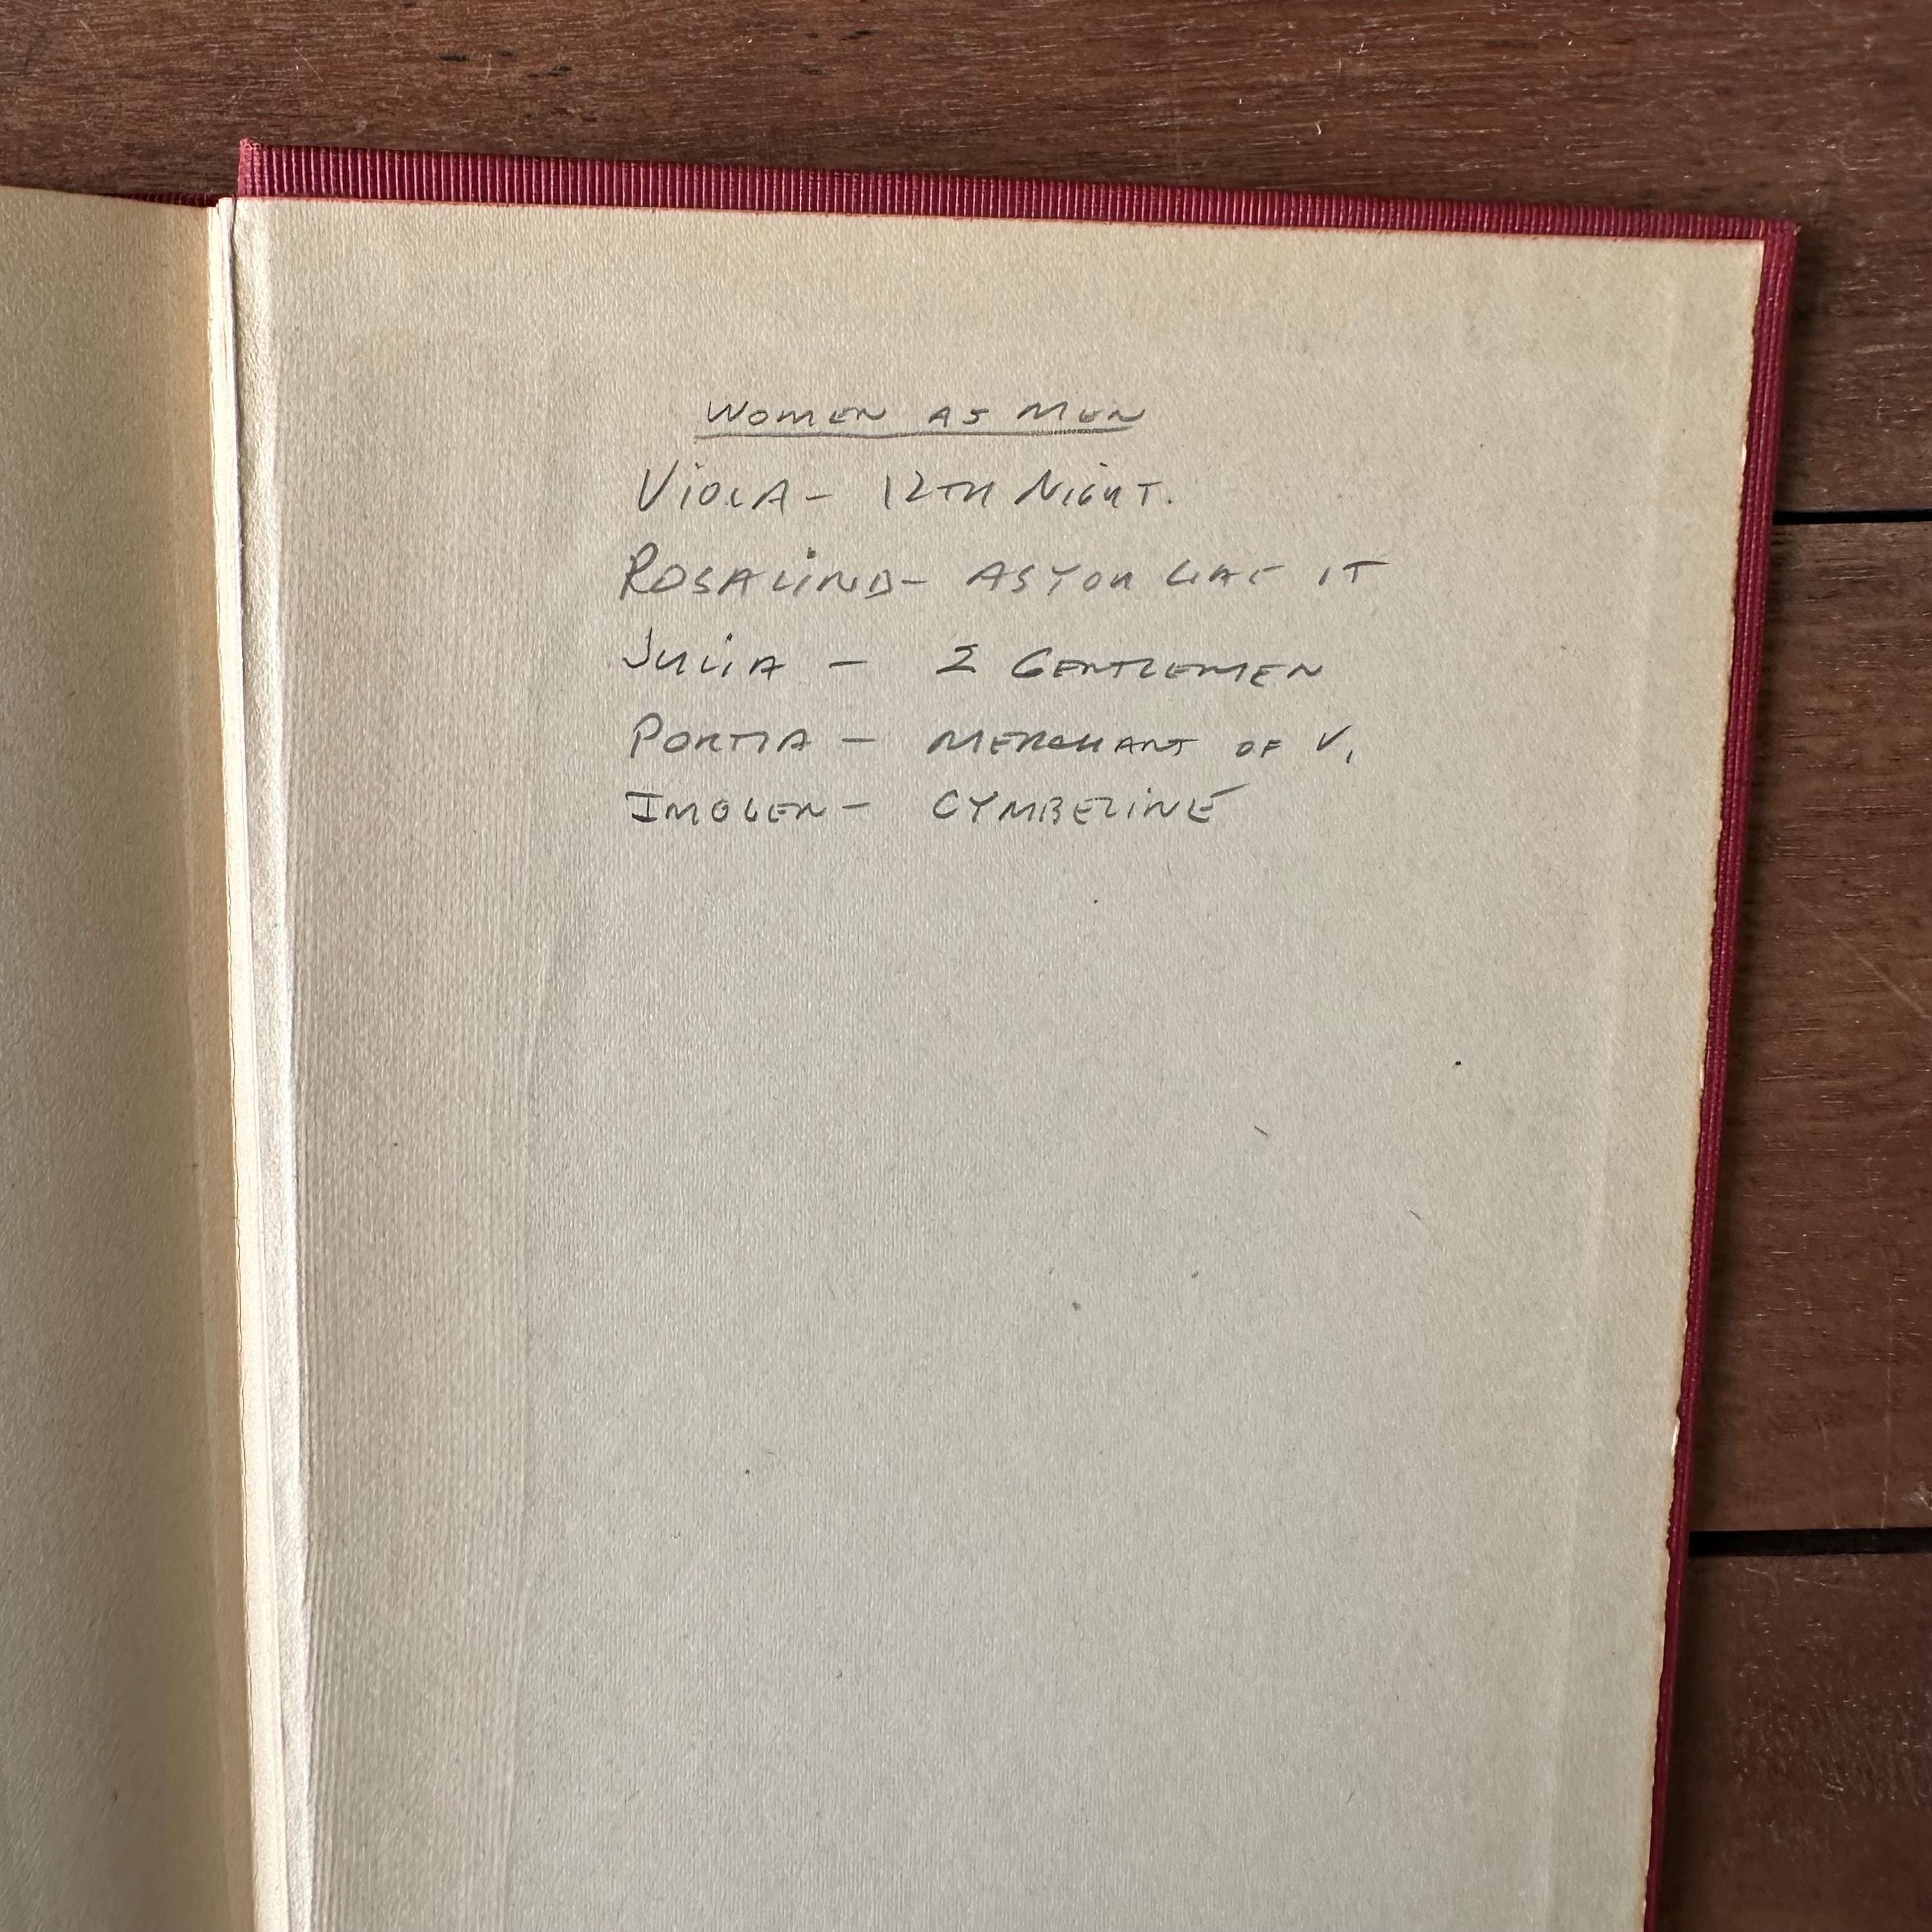 WOMEN AS MEN
VIOLA - 12TH NIGHT.
ROSALIND - AS YOU LIKE IT
JULIA - 2 GENTLEMEN
PORTIA - MERCHANT OF V.
IMOGEN - CYMBELINE